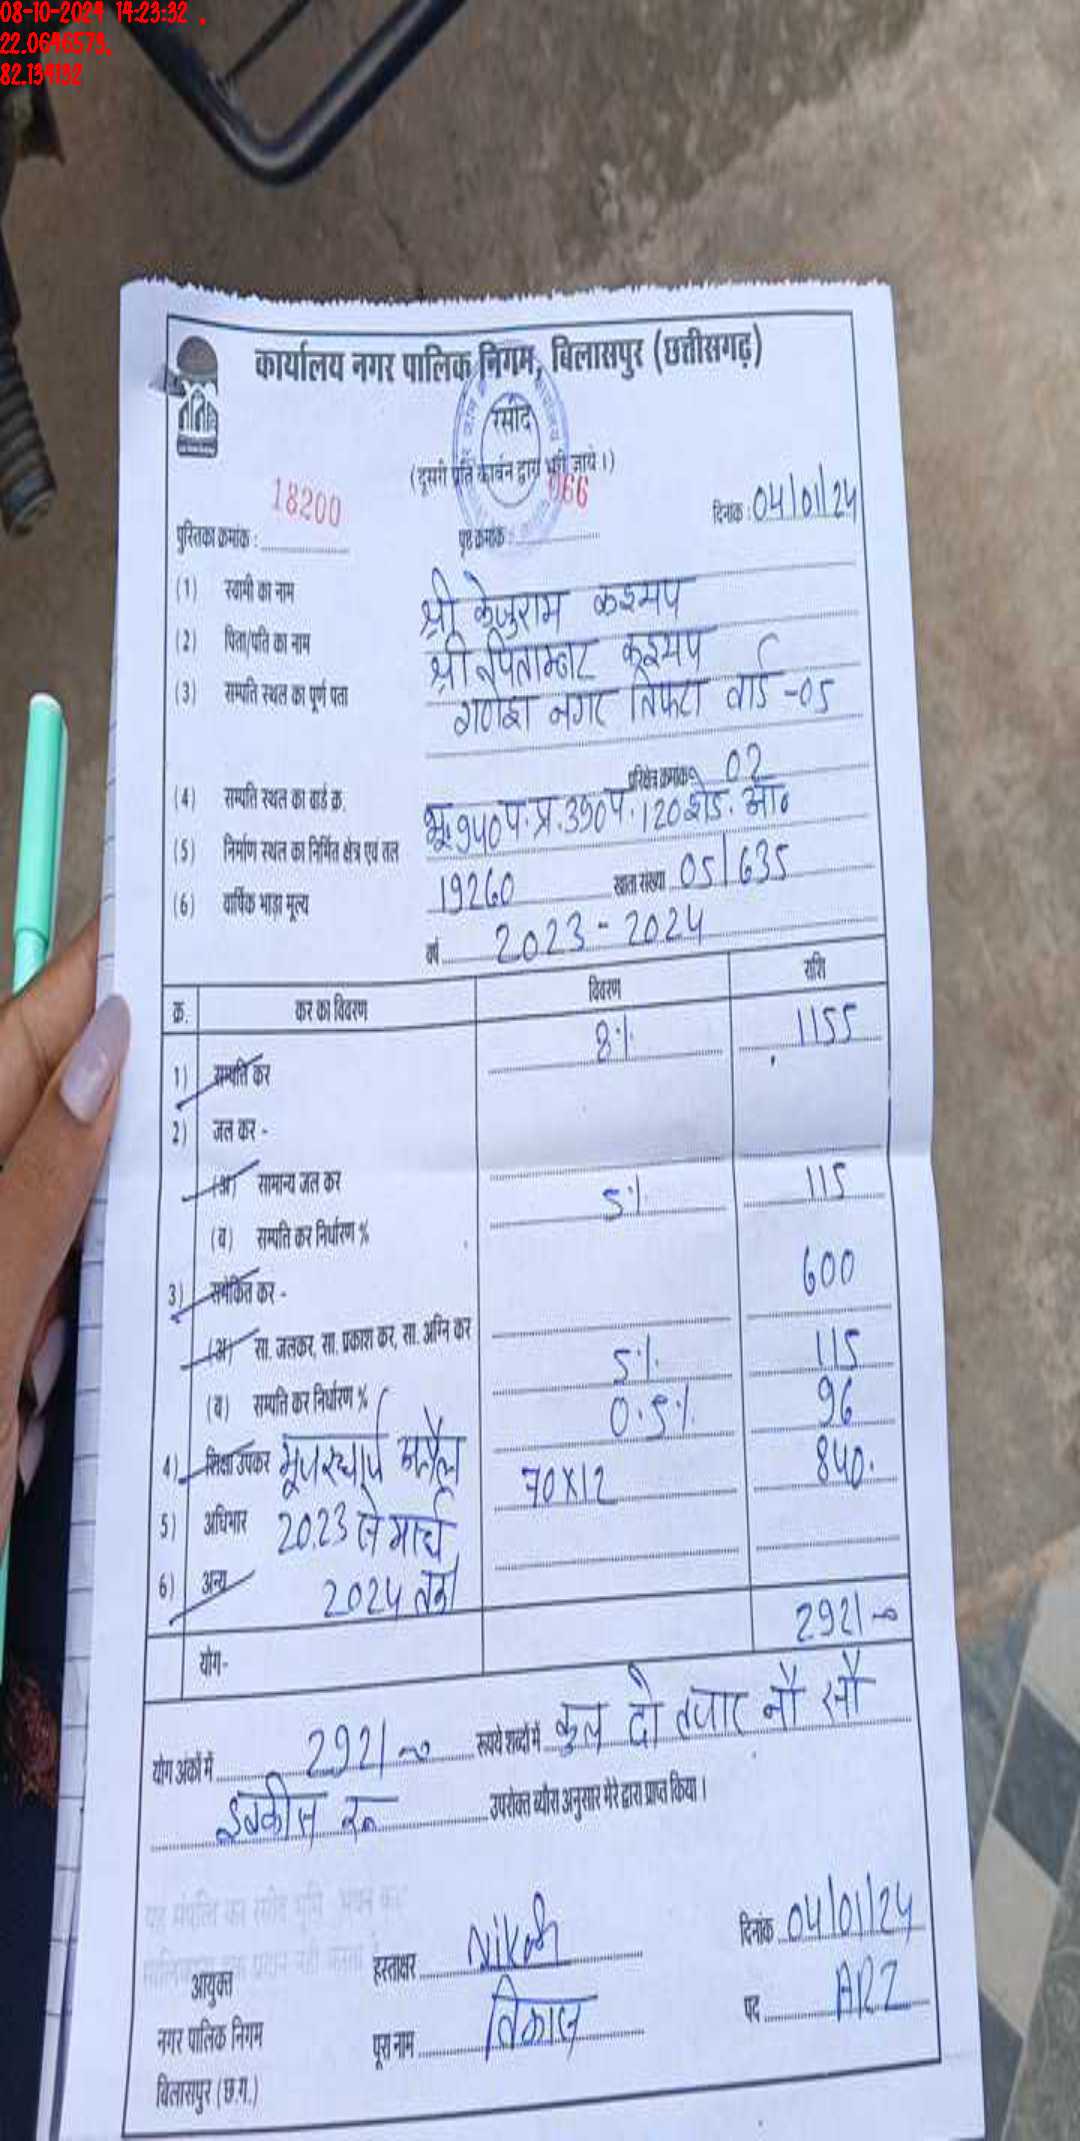 08-10-2024 14:23:32 ,
22.0646573,
82.134132
कार्यालय नगर पालिक निगम, बिलासपुर (छत्तीसगढ़)
रसीद
(दूसरी प्रति कार्बन द्वारा भरी जाये।)
पुस्तिका क्रमांक : 18200 पृष्ठ क्रमांक : 066 दिनांक : 04/01/24
(1) स्वामी का नाम श्री केजुराम कश्यप
(2) पिता/पति का नाम श्री पिताम्बर कश्यप
(3) सम्पति स्थल का पूर्ण पता गणेश नगर तिफरा वार्ड -05
(4) सम्पति स्थल का वार्ड क्र. परिक्षेत्र क्रमांक 02
(5) निर्माण स्थल का निर्मित क्षेत्र एवं तल भू.940प.प्र.390प.120शेड.ओ०
(6) वार्षिक भाड़ा मूल्य 19260 खाता संख्या 05/635
वर्ष 2023 - 2024
क्र. कर का विवरण विवरण राशि
1) सम्पति कर 8% 1155
2) जल कर -
(अ) सामान्य जल कर
(ब) सम्पति कर निर्धारण % 5% 115
3) समेकित कर - 600
(अ) सा. जलकर, सा. प्रकाश कर, सा. अग्नि कर
(ब) सम्पति कर निर्धारण % 5% 115
4) शिक्षा उपकर 0.5% 96
5) अधिभार 2023 से मार्च 70X12 840.
6) अन्य 2024 तक
योग- 2921
योग अंकों में 2921 रूपये शब्दों में कुल दो हजार नौ सौ
इक्कीस रू उपरोक्त ब्यौरा अनुसार मेरे द्वारा प्राप्त किया।
आयुक्त
नगर पालिक निगम
बिलासपुर (छ.ग.)
हस्ताक्षर दिनांक 04/01/24
पूरा नाम विकास पद ARI